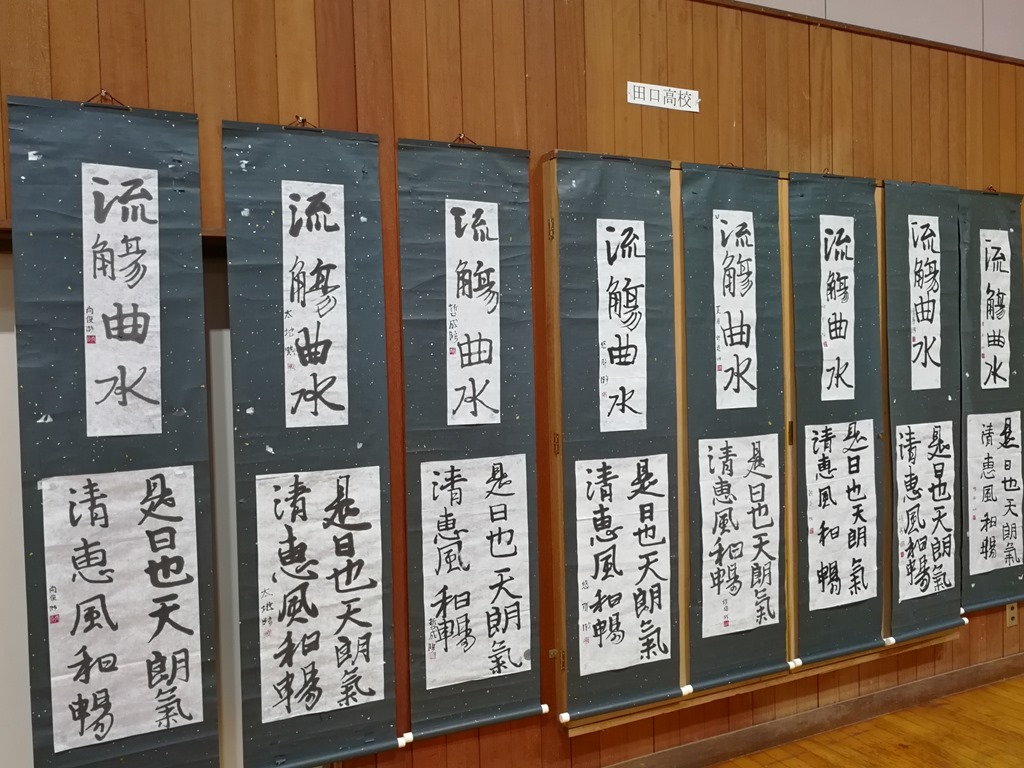 田口高校
流觴曲水
是日也天朗氣
清恵風和暢
流觴曲水
是日也天朗氣
清恵風和暢
流觴曲水
是日也天朗氣
清恵風和暢
流觴曲水
是日也天朗氣
清恵風和暢
流觴曲水
是日也天朗氣
清恵風和暢
流觴曲水
是日也天朗氣
清恵風和暢
流觴曲水
是日也天朗氣
清恵風和暢
流觴曲水
是日也天朗氣
清恵風和暢